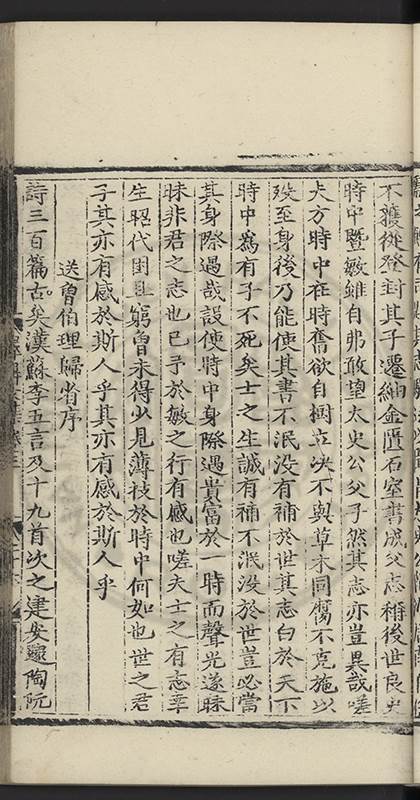 不獲從登封其子遷紬金匱石室書成父志稱後世良史
時中暨敏雖自弗敢望太史公父子然其志亦豈異哉嗟
夫方時中在時奮欲自樹立決不與草木同腐不克施以
歿至身後乃能使其書不泯没有補於世其志白於天下
時中爲有子不死矣士之生誠有補不泯没於世豈必當
其身際遇哉設使時中身際遇貴富於一時而聲光遂昧
昧非君之志也已予於敏之行有感也嗟夫士之有志幸
生昭代困且窮曾未得少見薄技於時中何如也世之君
子其亦有感於斯人乎其亦有感於斯人乎
送曾伯理歸省序
詩三百篇古矣漢蘇李五言及十九首次之建安鄴陶阮